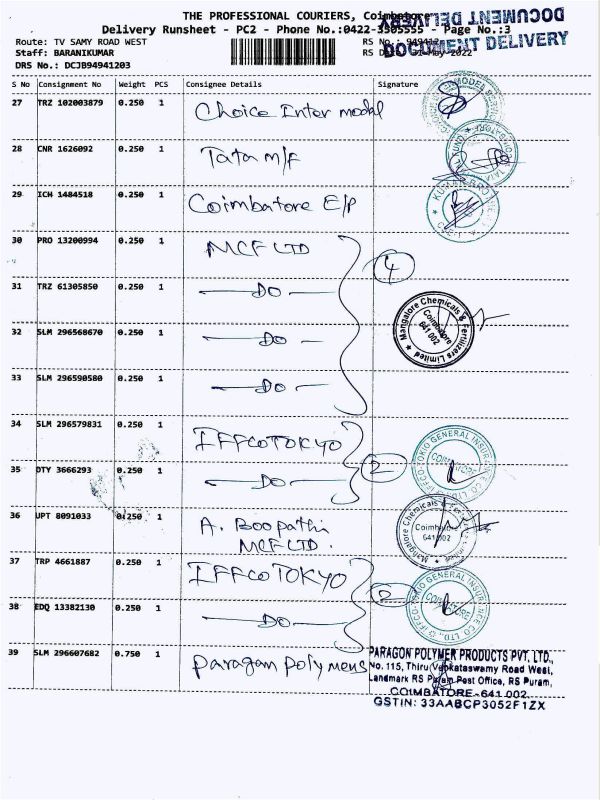 THE PROFESSIONAL COURIERS, Coimbatore
DOCUMENT DELIVERY
Delivery Runsheet - PC2 - Phone No.:0422-3505555 - Page No.:3
DOCUMENT DELIVERY
Route: TV SAMY ROAD WEST
RS No.:
Staff: BARANIKUMAR
RS Date: May-2022
DRS No.: DCJB94941203
S No Consignment No Weight PCS Consignee Details Signature
27 TRZ 102003879 0.250 1 Choice Inter modal
28 CNR 1626092 0.250 1 Tata m/f
29 ICH 1484518 0.250 1 Coimbatore E/P
30 PRO 13200994 0.250 1 MCF LTD
4
31 TRZ 61305850 0.250 1 DO
Mangalore Chemicals & Fertilizers Limited
Coimbatore
641 002
32 SLM 296568670 0.250 1 DO
33 SLM 296590580 0.250 1 DO
34 SLM 296579831 0.250 1 IFFCO TOKYO
2
IFFCO-TOKIO GENERAL INSURANCE CO. LTD.
COIMBATORE
35 DTY 3666293 0.250 1 DO
36 UPT 8091033 0.250 1 A. Boopathi
MCF LTD.
Mangalore Chemicals & Fertilizers Limited
Coimbatore
641 002
37 TRP 4661887 0.250 1 IFFCO TOKYO
IFFCO-TOKIO GENERAL INSURANCE CO. LTD.
COIMBATORE
38 EDQ 13382130 0.250 1 DO
39 SLM 296607682 0.750 1 Paragan Polymers
PARAGON POLYMER PRODUCTS PVT. LTD.,
No. 115, Thiru Venkataswamy Road West,
Landmark RS Puram Post Office, RS Puram,
COIMBATORE - 641 002.
GSTIN: 33AABCP3052F1ZX